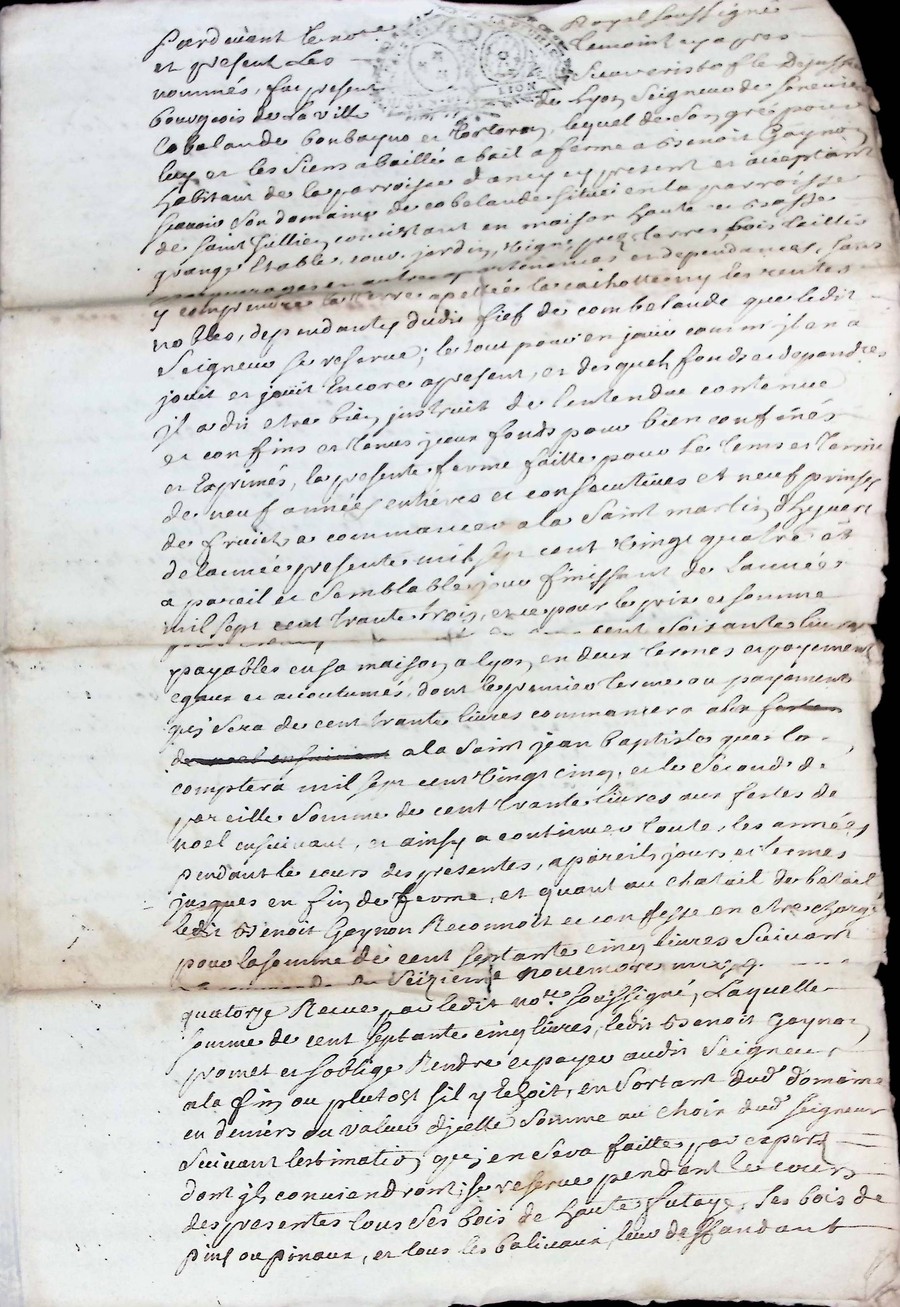 Pardevant le no.re Royal soussigné
et present les temoins cy apres
nommés, fut present Sieur Cristofle Dejussieu
bourgeois de la ville de Lyon Seigneur de
Cobelande bonbayno et lequel de son gré pour
luy et les siens a baillé a bail a ferme a Benoit Goynon
habitant de la parroisse d'ancy cy present et acceptant
scavoir son domaine de cobelande situé en la parroisse
de saint Jullien concistant en maison haute et basse
grange Etable, cour, jardin, vigne prez terres, bois taillis
pasquerages et autres apartenances et dependances, sans
y comprendre la terre apellée la cachotte ny les rentes
nobles, dependants dudit fief de combelande que ledit
Seigneur se reserve; le tout pour en jouir comm' il en a
jouit et jouit Encore a present, et desquels fonds et dependces
il a dit etre bien instruit de l'entendue contenue
et confins et tenus iceux fonds pour bien confinés
et Exprimés, la presente ferme faitte pour le tems et terme
de neuf années entieres et consecutives et neuf prinses
de fruits a commancer a la Saint martin d'hyvert
de l'année presente mil sept cent vingt quatre et
a pareil et semblable jour finissant de l'année
mil sept cent trante trois, et ce pour le prix et somme
cent soixante livres
payables en sa maison a lyon en deux termes et payement
egaux et accoutumés, dont le premier terme ou payement
qui sera de cent trante livres commancera
a la Saint jean baptiste que l'on
comptera mil sept cent vingt cinq, et le second de
pareille somme de cent trante livres aux festes de
noel ensuivant, et ainsy a continuer toutes les années
pendant le cours des presentes, a pareils jours et termes
jusques en fin de ferme, et quant au chatail de betail
ledit Benoit Goynon Reconnoit et confesse en etre chargé
pour la somme de cent septante cinq livres suivant
la commande du seizieme novembre
quatorze Receue par ledit no.re soussigné, Laquelle
somme de cent septante cinq livres, ledit Benoit Goynon
promet et s'oblige Rendre et payer audit Seigneur
a la fin ou plutost s'il y Echoit, en sortant dud. domaine
en deniers ou valeur d'icelle somme au choix dud. seigneur
suivant l'estimation qui en sera faitte par experts
dont ils conviendront; se reserve pendant le cours
des presentes tous ses bois de haute futaye, ses bois de
pins ou pinaux, et tous les balivaux, luy deffandant